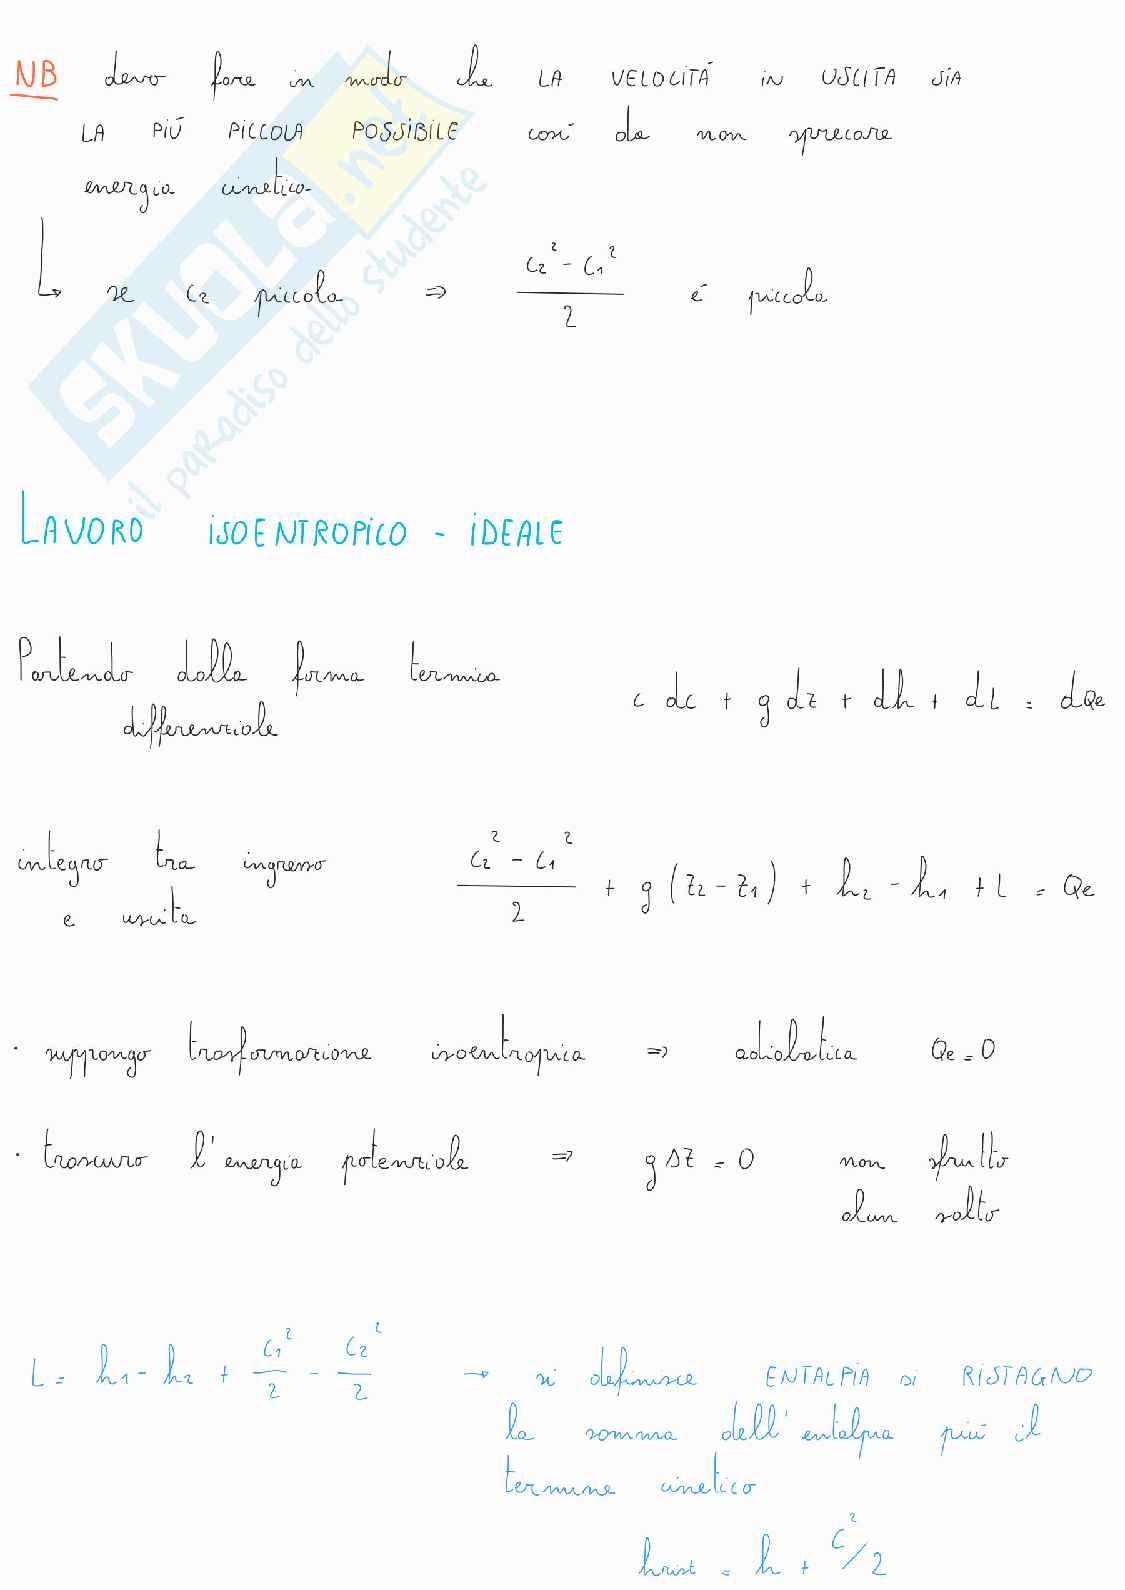 NB devo fare in modo che LA VELOCITÁ IN USCITA SIA
LA PIÚ PICCOLA POSSIBILE così da non sprecare
energia cinetica
se c₂ piccola ⇒ (c₂² - c₁²)/2 é piccola
SKUOLA.net
il paradiso dello studente
LAVORO ISOENTROPICO - IDEALE
Partendo dalla forma termica
differenziale
c dc + g dz + dh + dL = dQe
integro tra ingresso
e uscita
(c₂² - c₁²)/2 + g (z₂ - z₁) + h₂ - h₁ + L = Qe
· suppongo trasformazione isoentropica ⇒ adiabatica Qe = 0
· trascuro l'energia potenziale ⇒ g Δz = 0 non sfrutto
alcun salto
L = h₁ - h₂ + c₁²/2 - c₂²/2 → si definisce ENTALPIA di RISTAGNO
la somma dell'entalpia piú il
termine cinetico
hrist = h + c²/2